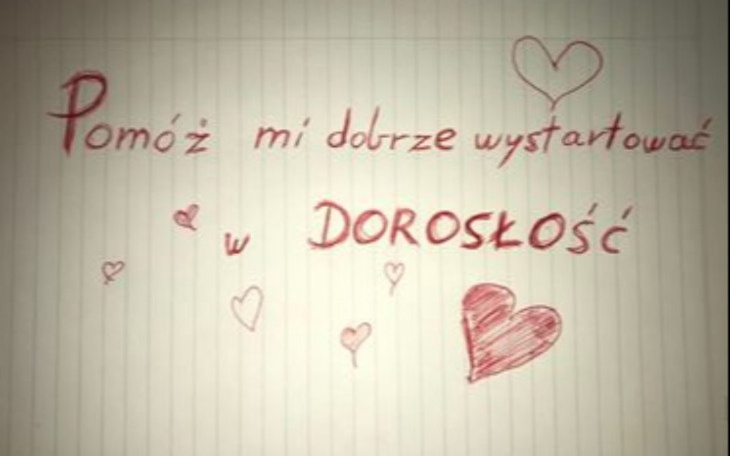 Pomóż mi dobrze wystartować
w DOROSŁOŚĆ